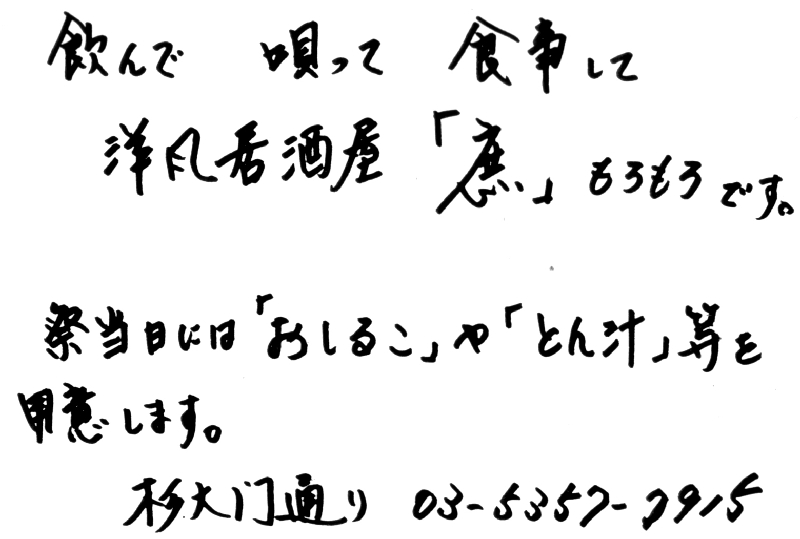 飲んで 唄って 食事して
洋風居酒屋「庶」もろもろです。
祭当日には「おしるこ」や「とん汁」等を
用意します。
杉大門通り 03-5357-7915